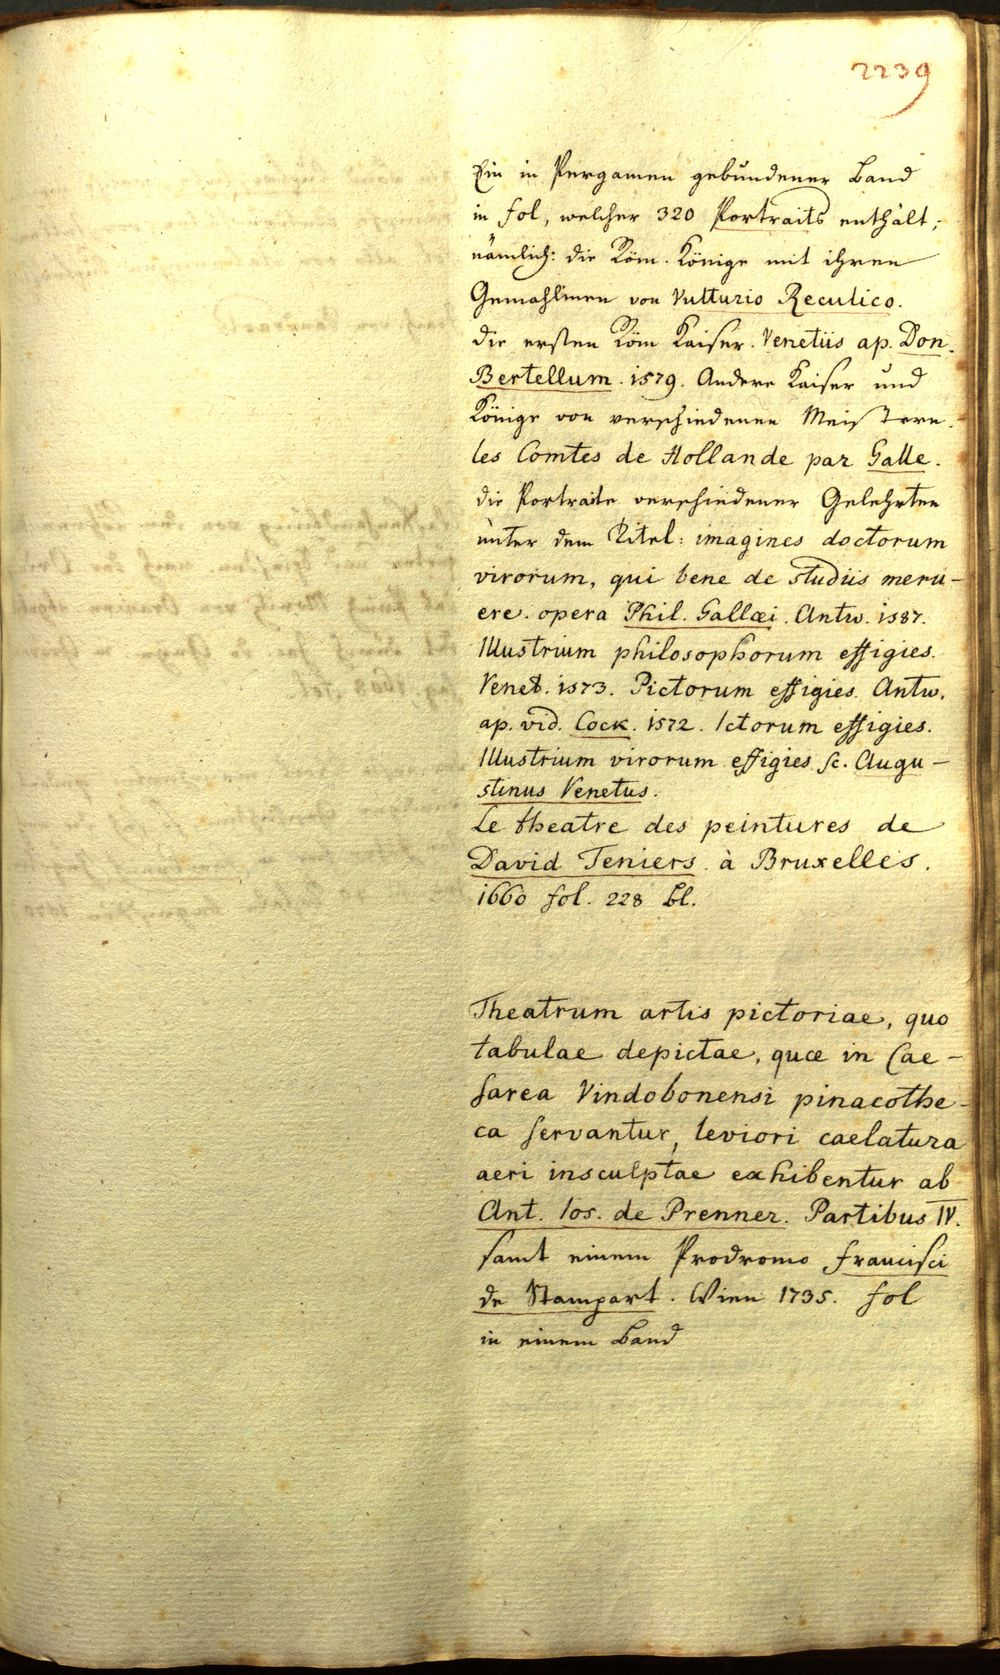 2239
Ein in Pergamen gebundener Band
in fol, welcher 320 Portraits enthält;
nämlich: die Röm. Könige mit ihren
Gemahlinen von Vulturio Reculico.
die ersten Röm Kaiser. Venetiis ap. Don.
Bertellum. 1579. Andere Kaiser und
Könige von verschiedenen Meistern.
les Comtes de Hollande par Galle.
die Portraite verschiedener Gelehrten
unter dem Titel: imagines doctorum
virorum, qui bene de studiis meru-
ere. opera Phil. Gallæi. Antw. 1587.
Illustrium philosophorum effigies.
Venet. 1573. Pictorum effigies. Antw.
ap. vid. Cock. 1572. Ictorum effigies.
Illustrium virorum effigies sc. Augu-
stinus Venetus.
Le theatre des peintures de
David Teniers à Bruxelles.
1660 fol. 228 bl.
Theatrum artis pictoriae, quo
tabulae depictae, quæ in Cae-
sarea Vindobonensi pinacothe-
ca servantur, leviori caelatura
aeri insculptae exhibentur ab
Ant. Ios. de Prenner. Partibus IV.
samt einem Prodromo Francisci
de Stampart. Wien 1735. fol
in einem Band